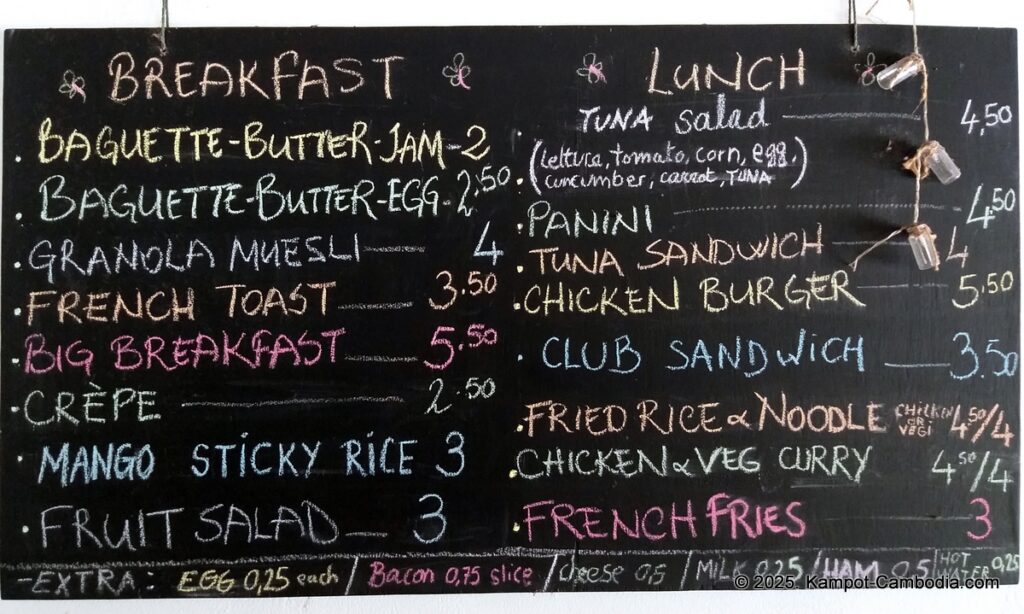 BREAKFAST
BAGUETTE-BUTTER-JAM-2
BAGUETTE-BUTTER-EGG-2.50
GRANOLA MUESLI 4
FRENCH TOAST 3.50
BIG BREAKFAST 5.50
CRÈPE 2.50
MANGO STICKY RICE 3
FRUIT SALAD 3
LUNCH
TUNA salad 4,50
(Lettuca, tomato, corn, egg,
cuncumber, carrot, TUNA)
PANINI 4.50
TUNA SANDWICH 4
CHICKEN BURGER 5.50
CLUB SANDWICH 3.50
FRIED RICE & NOODLE CHICKEN OR VEGI 4.50/4
CHICKEN & VEG CURRY 4 50/4
FRENCH FRIES 3
-EXTRA: EGG 0,25 each / Bacon 0,75 slice / cheese 0,5 / MILK 0,25 / HAM 0,5 / HOT WATER 0,25
© 2025. Kampot-Cambodia.com